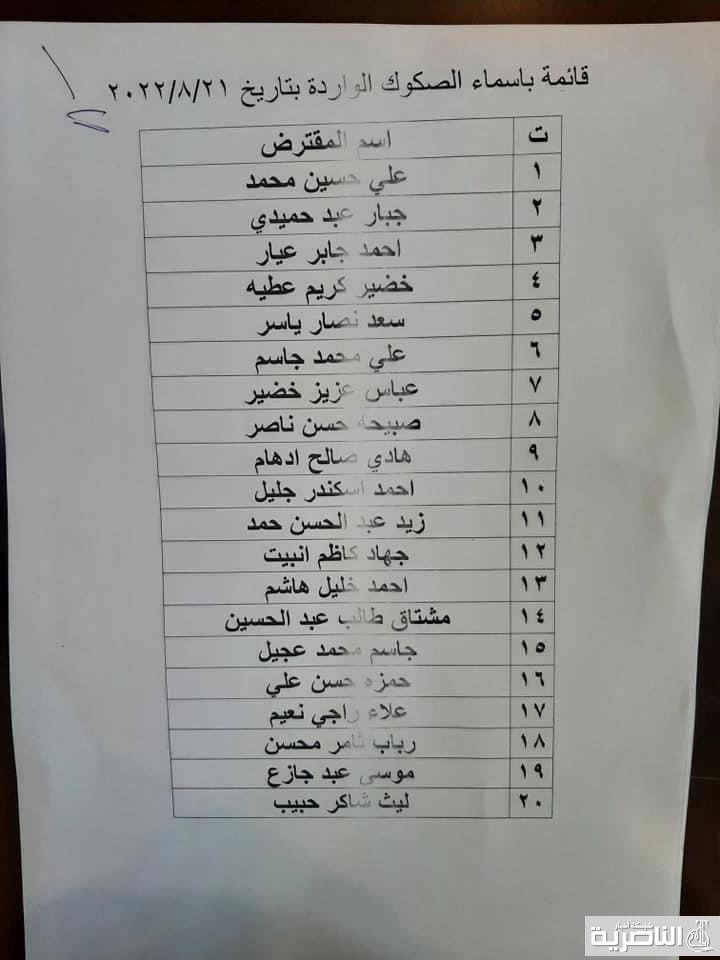 قائمة باسماء الصكوك الواردة بتاريخ ٢٠٢٢/٨/٢١
ت اسم المقترض
١ علي حسين محمد
٢ جبار عبد حميدي
٣ احمد جابر عيار
٤ خضير كريم عطيه
٥ سعد نصار ياسر
٦ علي محمد جاسم
٧ عباس عزيز خضير
٨ صبيحه حسن ناصر
٩ هادي صالح ادهام
١٠ احمد اسكندر جليل
١١ زيد عبد الحسن حمد
١٢ جهاد كاظم انبيت
١٣ احمد خليل هاشم
١٤ مشتاق طالب عبد الحسين
١٥ جاسم محمد عجيل
١٦ حمزه حسن علي
١٧ علاء راجي نعيم
١٨ رباب ثامر محسن
١٩ موسى عبد جازع
٢٠ ليث شاكر حبيب
شبكة اخبار
الناصرية